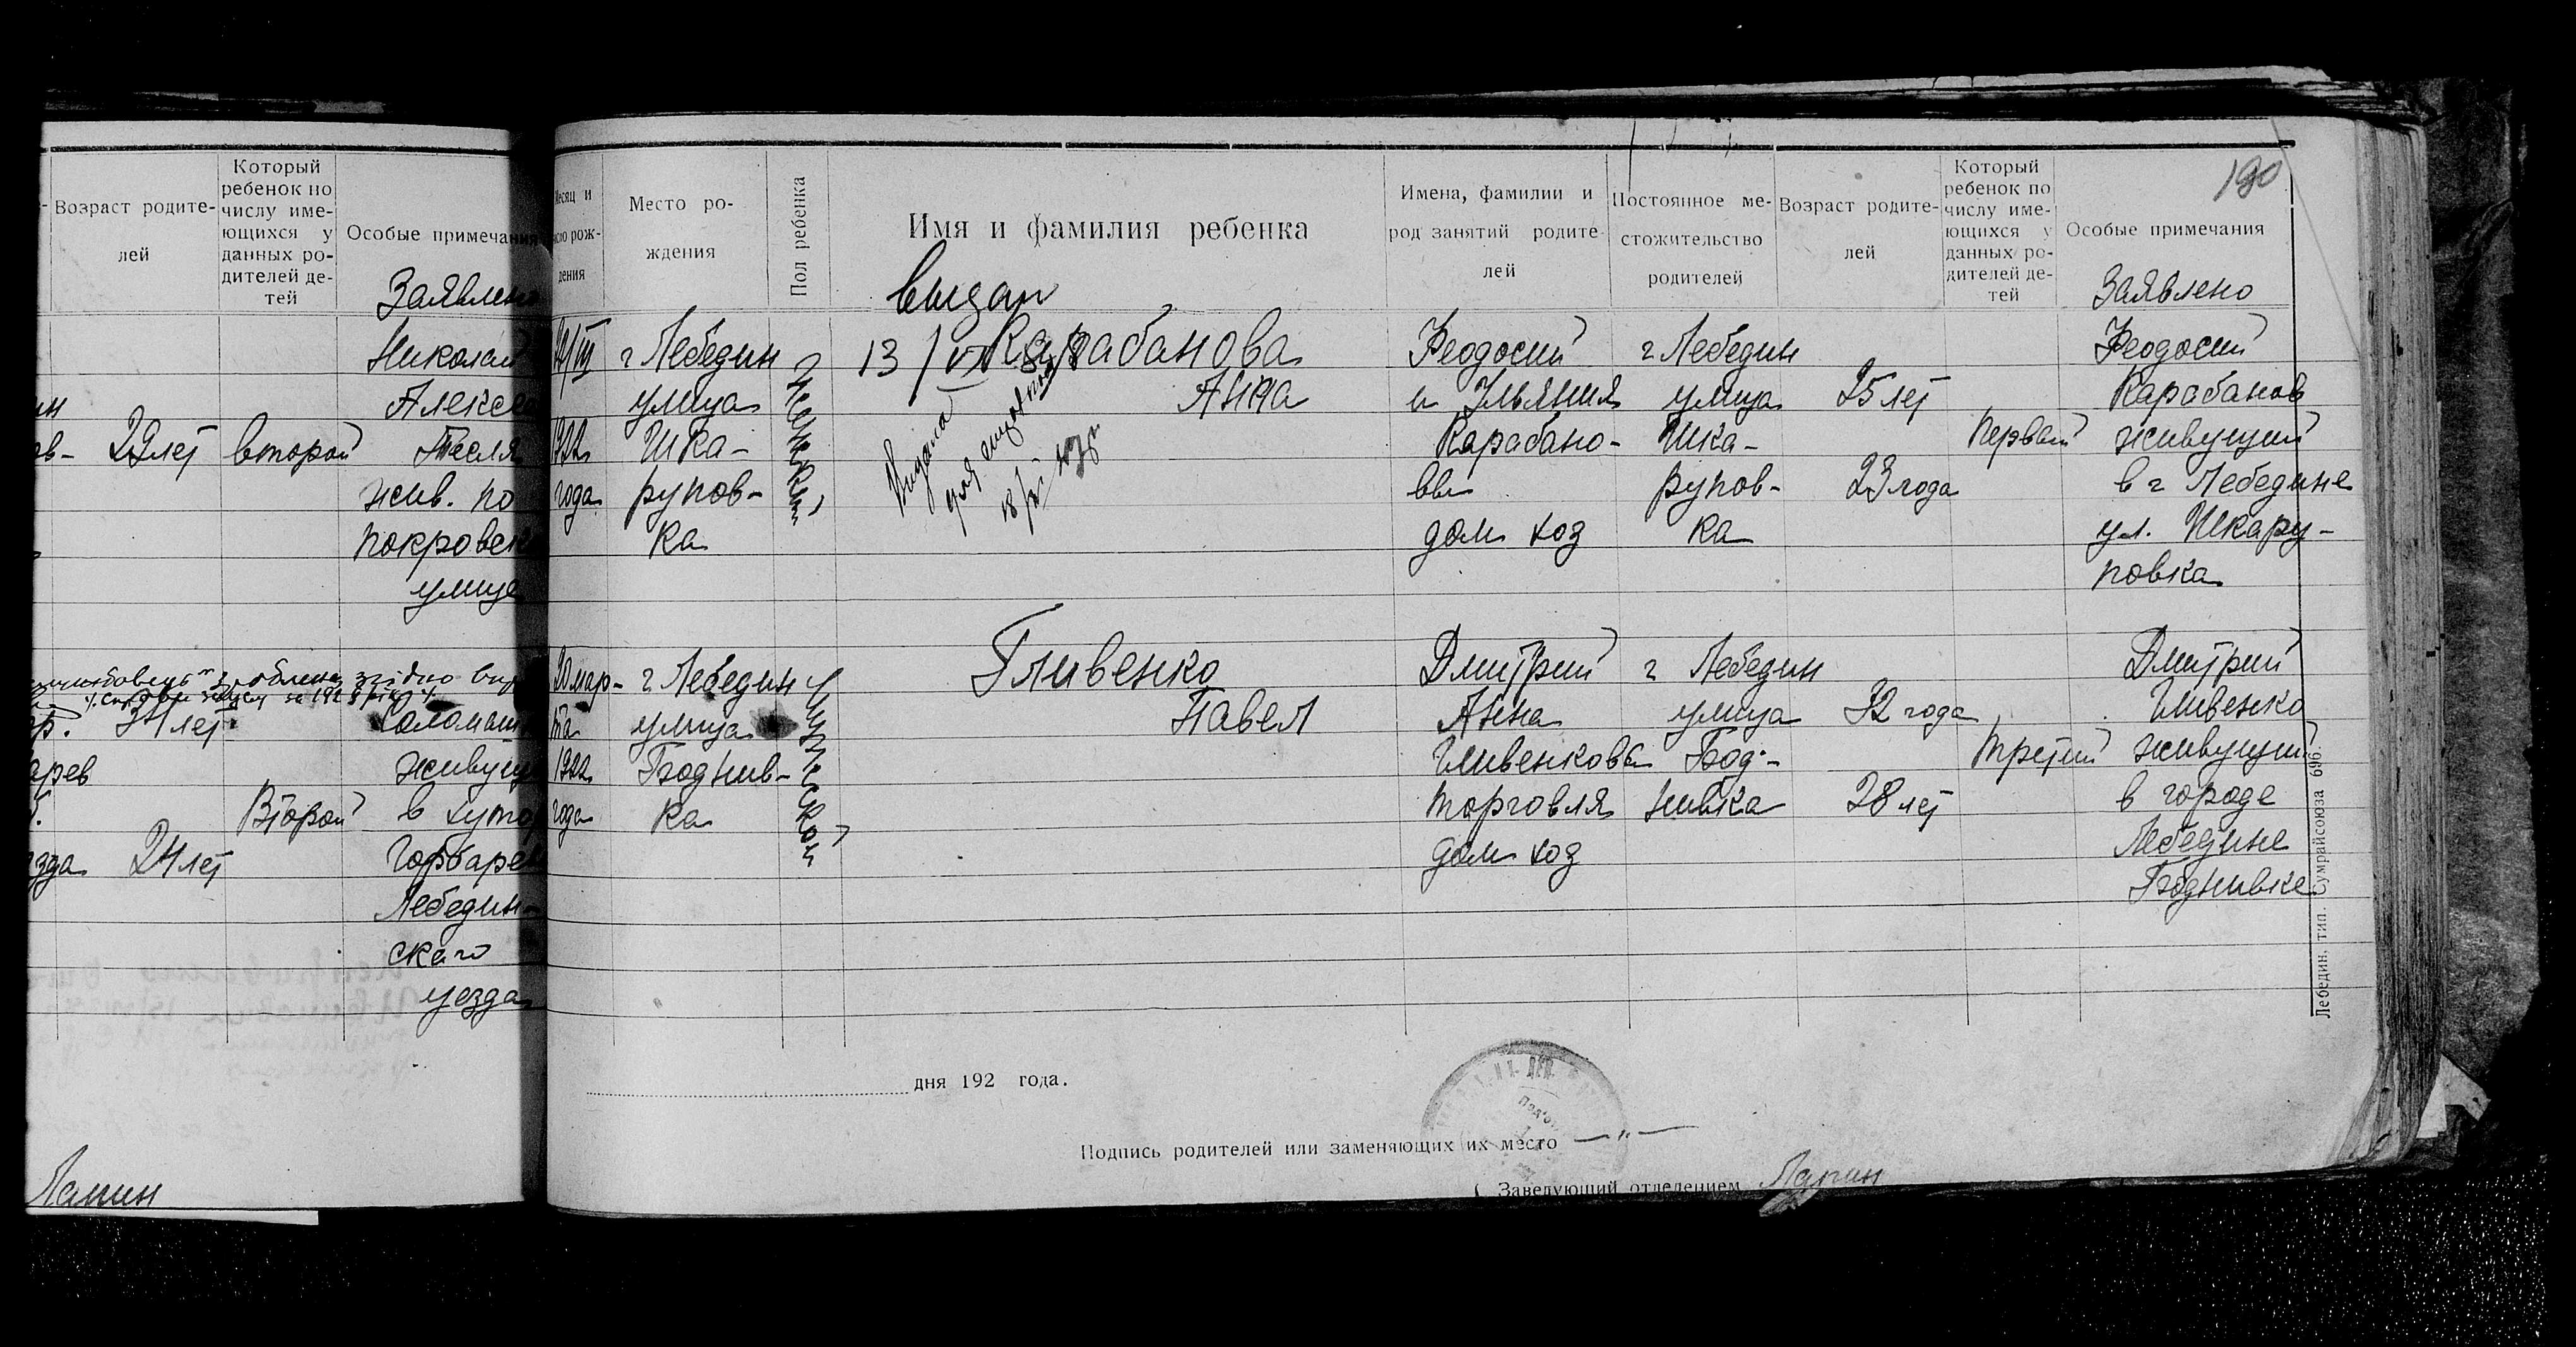 Возраст родите-
лей
Который
ребенок по
числу име-
ющихся у
данных ро-
дителей де-
тей
Особые примечания
Заявлено
Николай
Алексе
Тесля
жив. по
покровск
улице
29 лет
второй
зроблена згідно
34 лет
Соломаш
живущ
Второй
в хуто
24 лет
Горбарев
Лебедин-
скаго
уезда
Лапин
Месяц и
число рож-
дения
Место ро-
ждения
Пол ребенка
Имя и фамилия ребенка
Имена, фамилии и
род занятий родите-
лей
Постоянное ме-
стожительство
родителей
Возраст родите-
лей
Который
ребенок по
числу име-
ющихся у
данных ро-
дителей де-
тей
Особые примечания
190
Заявлено
/III
1922
года
г Лебедин
улица
Шка-
рупов-
ка
Женский
выдан
13/VI
Карабанова
Анна
Выдана
для
18/
Феодосий
и Ульяния
Карабано-
вы
дом хоз
г Лебедин
улица
Шка-
рупов-
ка
25 лет
23 года
Первый
Феодосий
Карабанов
живущий
в г Лебедине
ул. Шкару-
повка
20 мар-
та
1922
года
г Лебедин
улица
Боднив-
ка
Мужеской
Гливенко
Павел
Дмитрий
Анна
Гливенкова
торговля
дом хоз
г Лебедин
улица
Бод-
нивка
32 года
28 лет
третий
Дмитрий
Гливенко
живущий
в городе
Лебедине
Боднивке
Лебедин, тип. Сумрайсоюза 696.
дня 192 года.
Подпись родителей или заменяющих их место —"—
Заведующий отделением Лапин